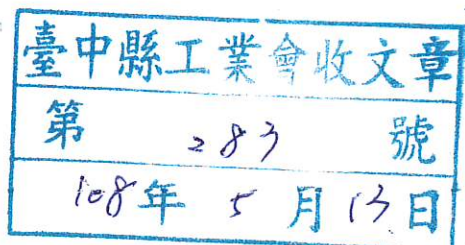 臺中縣工業會收文章
第 283 號
108年 5 月 13 日